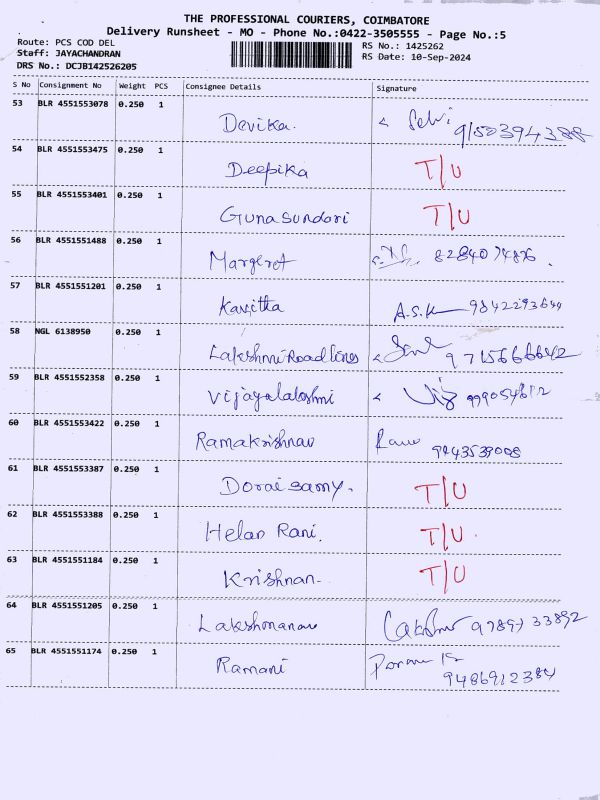 THE PROFESSIONAL COURIERS, COIMBATORE
Delivery Runsheet - MO - Phone No.:0422-3505555 - Page No.:5
Route: PCS COD DEL RS No.: 1425262
Staff: JAYACHANDRAN RS Date: 10-Sep-2024
DRS No.: DCJB142526205
S No Consignment No Weight PCS Consignee Details Signature
53 BLR 4551553078 0.250 1 Devika. Selvi
54 BLR 4551553475 0.250 1 Deepika T/U
55 BLR 4551553401 0.250 1 Gunasundari T/U
56 BLR 4551551488 0.250 1 Margeret
57 BLR 4551551201 0.250 1 Kavitha A.S.K
58 NGL 6138950 0.250 1 Lakshmi Roadlines 9715666642
59 BLR 4551552358 0.250 1 Vijayalalashmi Vij
60 BLR 4551553422 0.250 1 Ramakrishnan 9443539008
61 BLR 4551553387 0.250 1 Doraisamy. T/U
62 BLR 4551553388 0.250 1 Helan Rani. T/U
63 BLR 4551551184 0.250 1 Krishnan T/U
64 BLR 4551551205 0.250 1 Lakshmanan 9789733892
65 BLR 4551551174 0.250 1 Ramani 9486912384